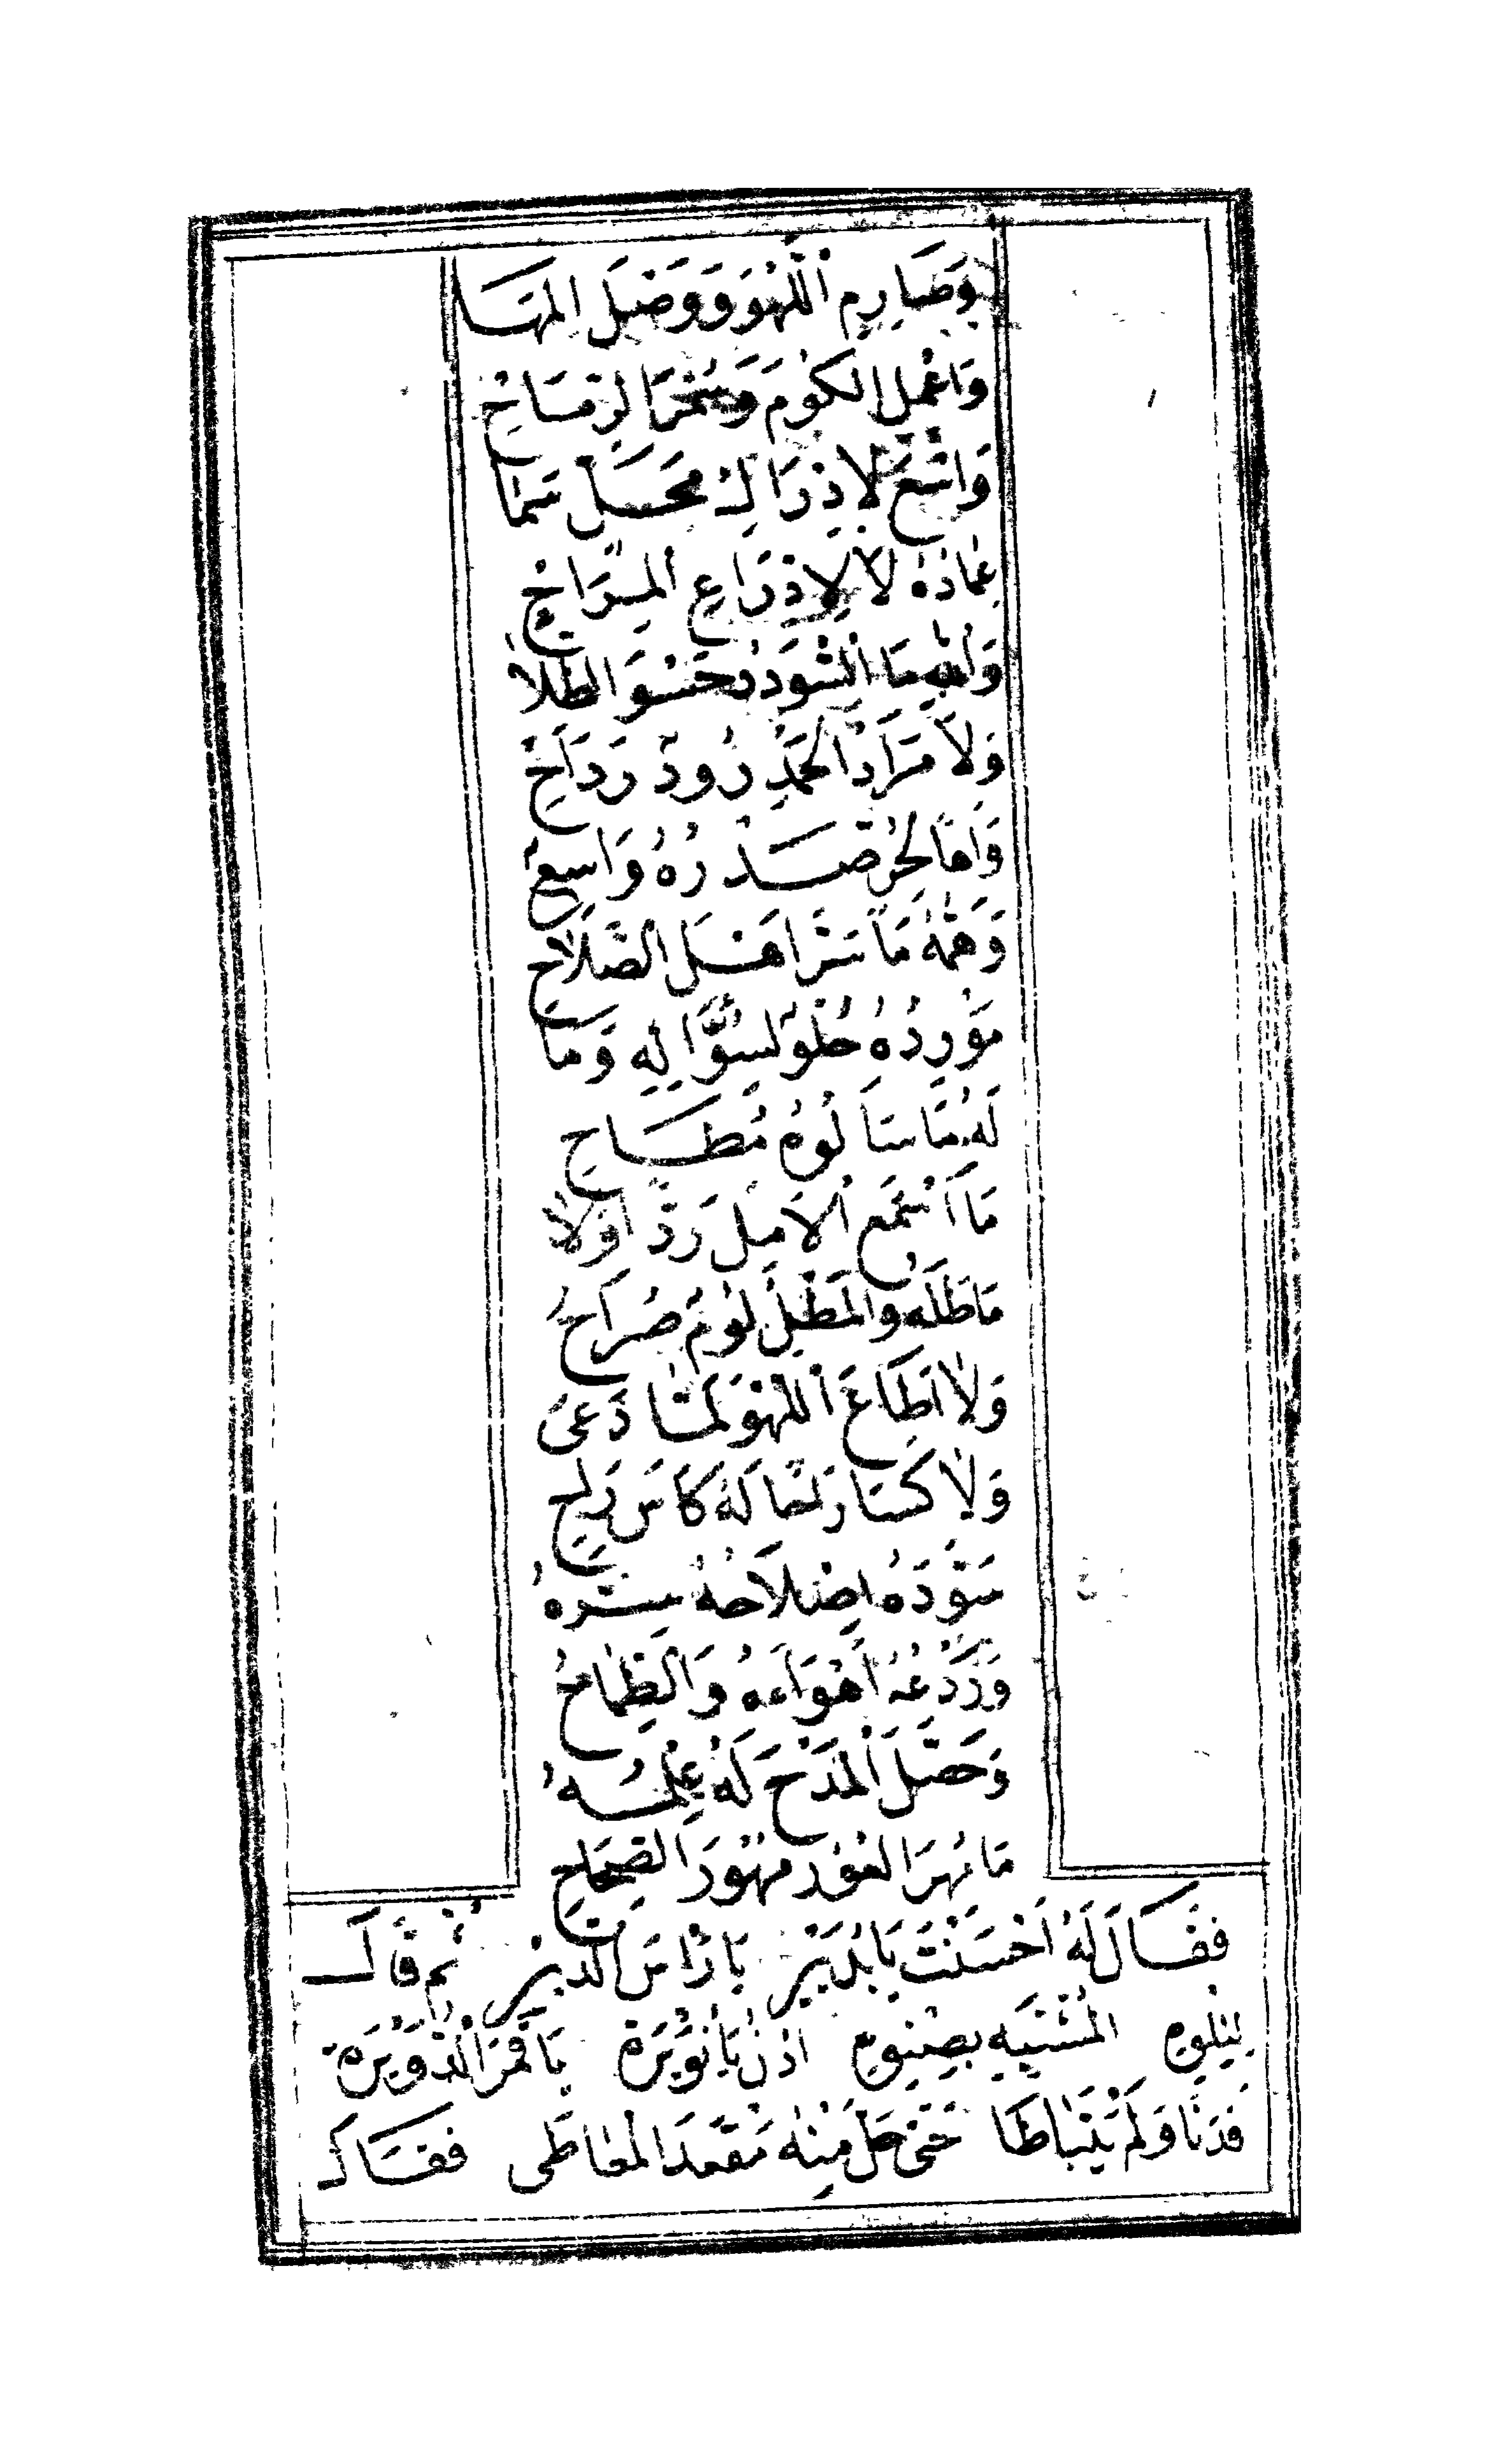 وَصَارِمِ اللَّهْوَ وَوَصْلَ الْمَهَا
وَاعْمِلِ الْكُومَ وَسُمْرَ الرِّمَاحْ
وَاسْعَ لِإِدْرَاكِ مَحَلٍّ سَمَا
عِمَادُهُ لَا لِادِّرَاعِ الْمِرَاحْ
وَاللهِ مَا السُّودَدُ حَسْوَ الطِّلَا
وَلَا مَرَادُ الْحَمْدِ رُودٌ رَدَاحْ
وَاهًا لِحُرٍّ صَدْرُهُ وَاسِعٌ
وَهَمُّهُ مَا سَرَّ أَهْلَ الصَّلَاحْ
مَوْرِدُهُ حُلْوٌ لِسُؤَّالِهِ وَمَا
لَهُ مَا سَأَلُوهُ مُطَاحْ
مَا أَسْمَعَ الْآمِلَ رَدًّا وَلَا
مَاطَلَهُ وَالْمَطْلُ لُؤْمٌ صُرَاحْ
وَلَا أَطَاعَ اللَّهْوَ لَمَّا دَعَى
وَلَا كَسَا رَاحًا لَهُ كَأْسَ رَاحْ
سَوَّدَهُ إِصْلَاحُهُ سِرَّهُ
وَرَدْعُهُ أَهْوَاءَهُ وَالطِّمَاحْ
وَحَصَّلَ الْمَدْحَ لَهُ عِلْمُهُ
مَا مُهِرَ الْعُورُ مُهُورَ الصِّحَاحْ
فَقَالَ لَهُ أَحْسَنْتَ يَا بُدَيْرُ يَا رَأْسَ الدَّيْرْ ثُمَّ قَالَ
لِتِلْوِهِ الْمُشْتَبِهِ بِصِنْوِهِ ادْنُ يَا نُوَيْرَةُ يَا قَمَرَ الدُّوَيْرَةِ
فَدَنَا وَلَمْ يَتَبَاطَا حَتَّى حَلَّ مِنْهُ مَقْعَدَ الْمُعَاطَى فَقَالَ